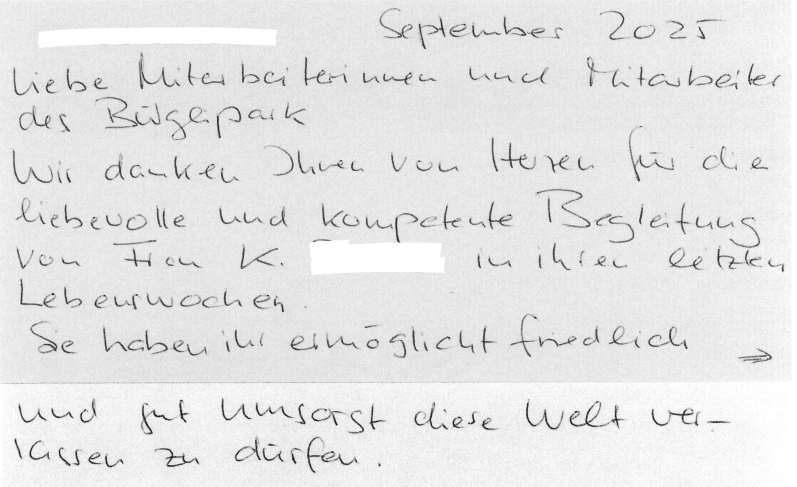 September 2025
Liebe Mitarbeiterinnen und Mitarbeiter
des Bürgerpark
Wir danken Ihnen von Herzen für die
liebevolle und kompetente Begleitung
von Frau K. in ihren letzten
Lebenswochen.
Sie haben ihr ermöglicht friedlich ⇒
und gut umsorgt diese Welt ver-
lassen zu dürfen.